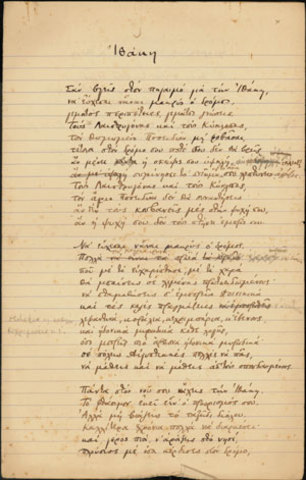 Ἰθάκη
Σὰν βγεῖς στὸν πηγαιμὸ γιὰ τὴν Ἰθάκη,
νὰ εὔχεσαι νἆναι μακρὺς ὁ δρόμος,
γεμάτος περιπέτειες, γεμάτος γνώσεις.
Τοὺς Λαιστρυγόνας καὶ τοὺς Κύκλωπας,
τὸν θυμωμένο Ποσειδῶνα μὴ φοβᾶσαι,
τέτοια στὸν δρόμο σου ποτέ σου δὲν θὰ βρεῖς,
ἂν μέν᾿ ἡ σκέψις σου ὑψηλή,
συγκίνησις
Τοὺς Λαιστρυγόνας καὶ τοὺς Κύκλωπας,
τὸν ἄγριο Ποσειδῶνα δὲν θὰ συναντήσεις
ἂν δὲν τοὺς κουβανεῖς μὲς στὴν ψυχή σου,
ἂν ἡ ψυχή σου δὲν τοὺς στήνει ἐμπρός σου.
Νὰ εὔχεσαι νἆναι μακρὺς ὁ δρόμος.
Πολλὰ τὰ πρωϊὰ
ποῦ μὲ τί εὐχαρίστησι, μὲ τί χαρὰ
θὰ μπαίνεις σὲ λιμένας πρωτοειδωμένους·
νὰ σταματήσεις σ᾿ ἐμπορεῖα Φοινικικὰ
καὶ τὲς καλὲς πραγμάτειες
καὶ ἡδονικὰ μυρωδικὰ κάθε λογῆς,
ὅσο μπορεῖς πιὸ ἄφθονα ἡδονικὰ μυρωδικὰ
σὲ πόλεις Αἰγυπτιακὲς πολλὲς νὰ πᾷς,
νὰ μάθεις καὶ νὰ μάθεις ἀπ᾿ τοὺς σπουδασμένους.
Πάντα στὸν νοῦ σου νἄχεις τὴν Ἰθάκη.
Τὸ φθάσιμον ἐκεῖ εἶν᾿ ὁ προορισμός σου.
Ἀλλὰ μὴ βιάζεις τὸ ταξεῖδι διόλου.
Καλλίτερα χρόνια πολλὰ νὰ διαρκέσει·
καὶ γέρος πιὰ ν᾿ ἀράξεις στὸ νησί,
πλούσιος μὲ ὅσα κέρδισες στὸν δρόμο,